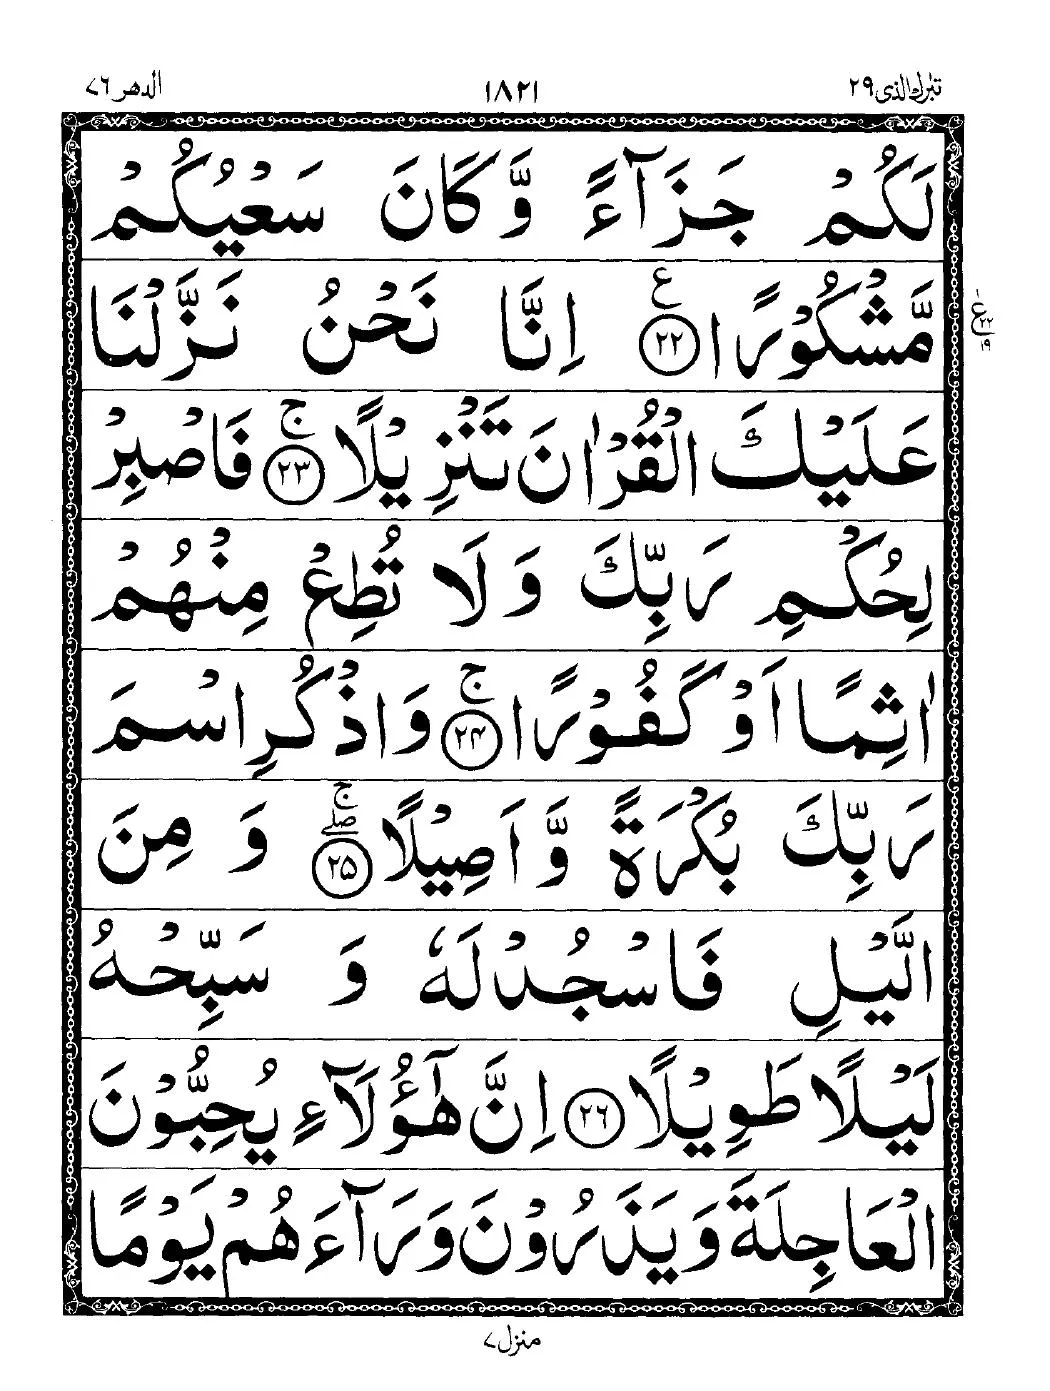 تبٰرك الذی ۲۹
۱۸۲۱
الدهر ۷۶
لَكُمْ جَزَآءً وَّكَانَ سَعْيُكُمْ
مَّشْكُوْرًا ﴿۲۲﴾ ع اِنَّا نَحْنُ نَزَّلْنَا
ع ۱ ۲۲ ۱۹
عَلَيْكَ الْقُرْاٰنَ تَنْزِيْلًا ﴿۲۳﴾ ج فَاصْبِرْ
لِحُكْمِ رَبِّكَ وَلَا تُطِعْ مِنْهُمْ
اٰثِمًا اَوْ كَفُوْرًا ﴿۲۴﴾ ج وَاذْكُرِ اسْمَ
رَبِّكَ بُكْرَةً وَّاَصِيْلًا ﴿۲۵﴾ ج صلے وَمِنَ
الَّيْلِ فَاسْجُدْ لَهٗ وَسَبِّحْهُ
لَيْلًا طَوِيْلًا ﴿۲۶﴾ اِنَّ هٰٓؤُلَآءِ يُحِبُّوْنَ
الْعَاجِلَةَ وَيَذَرُوْنَ وَرَآءَهُمْ يَوْمًا
منزل ۷